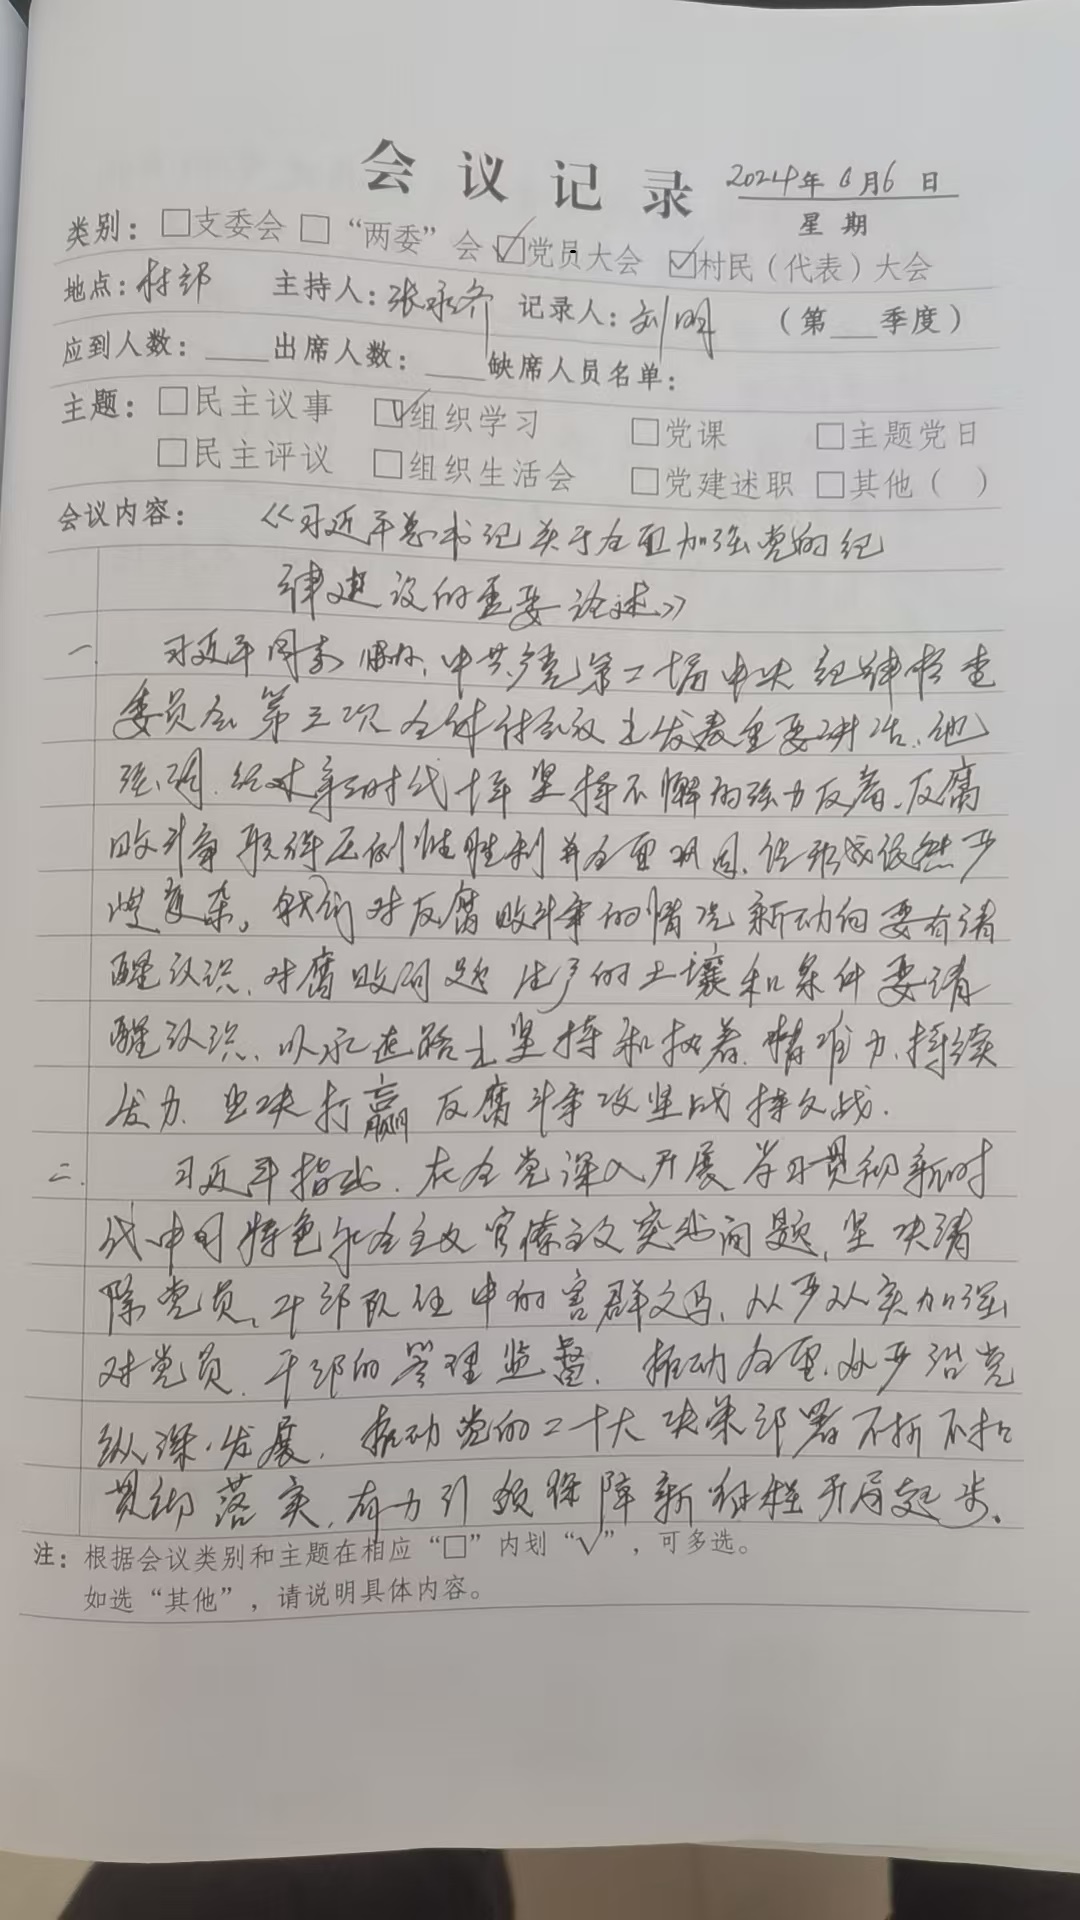 会议记录 2024年6月6日
星期
类别：□支委会 □“两委”会 ☑党员大会 ☑村民（代表）大会
地点：村部 主持人：张永齐 记录人：刘明 （第 季度）
应到人数： 出席人数： 缺席人员名单：
主题：□民主议事 ☑组织学习 □党课 □主题党日
□民主评议 □组织生活会 □党建述职 □其他（ ）
会议内容： 《习近平总书记关于全面加强党的纪
律建设的重要论述》
一、 习近平同志 中共党第二十届中央纪律检查
委员会第三次全体会议上发表重要讲话、他
强调、经过新时代十年坚持不懈的强力反腐、反腐
败斗争取得压倒性胜利并全面巩固、但形势依然严
峻复杂。我们对反腐败斗争的情况新动向要有清
醒认识、对腐败问题生产的土壤和条件要清
醒认识、以永远路上坚持和执着、精准力、持续
发力、坚决打赢反腐斗争攻坚战持久战.
二、 习近平指出、在全党深入开展学习贯彻新时
代中国特色 主义官僚主义突出问题、坚决清
除党员、干部队伍中的害群之马、从严从实加强
对党员、干部的管理监督、推动全面、从严治党
纵深、发展、推动党的二十大决策部署不折不扣
贯彻落实、有力引领保障新征程开局起步、
注：根据会议类别和主题在相应“□”内划“√”，可多选。
如选“其他”，请说明具体内容。